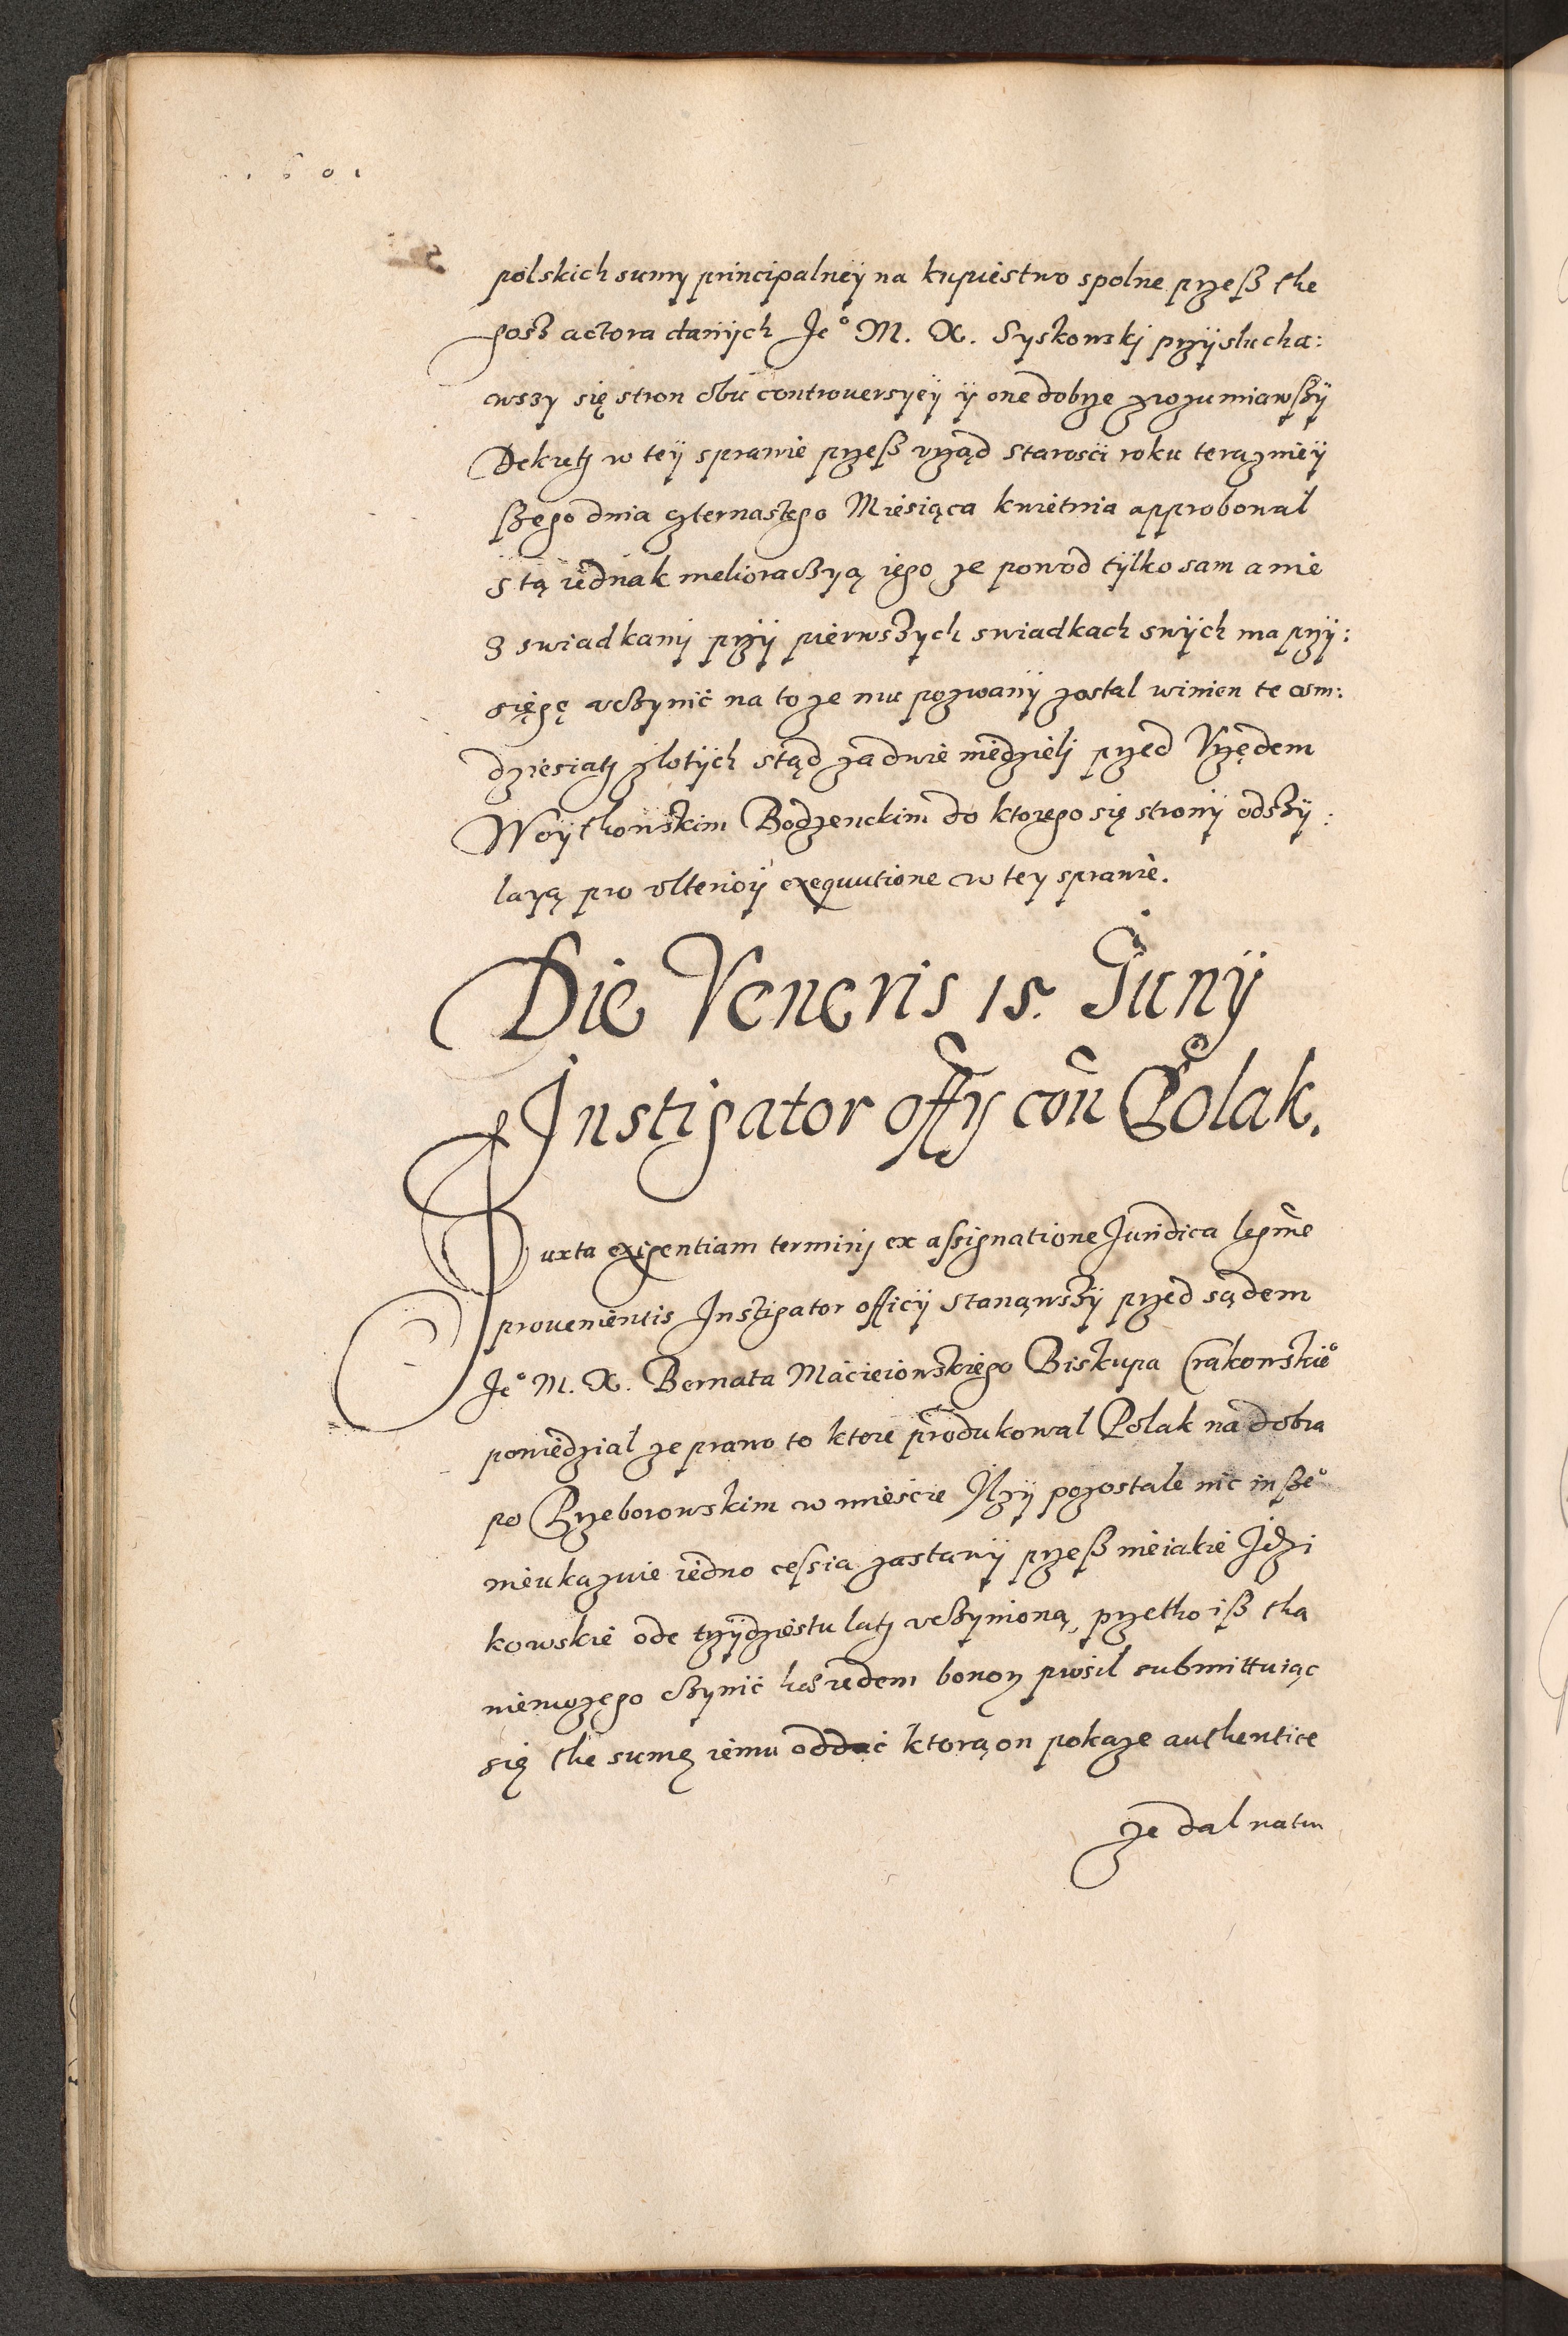 1601
polskich sumy principalneÿ na kupiestwo spolne przeß the
gosz actora danÿch Jeº M. X. Syskowskj przÿslucha:
wszy się stron obu controuersÿeÿ ÿ one dobrze zrozumiawßÿ
Dekretj w teÿ sprawie przeß vrząd Starosći roku teraznieÿ
ßego dnia czternastego Miesiąca kwietnia approbowal
s tą iednak melioraczyą iego ze powod tÿlko sam a nie
z swiadkamj przÿ pierwszych swiadkach swÿch ma przÿ:
sięgę vczynić na to ze mu pozwanÿ zostal winien te osm:
dziesiatj zlotÿch stąd za dwie niedzielj przed Vrzędem
Woÿthowskim Bodzenckim do ktorego się stronÿ odszÿ:
laÿą pro vlteriorj exequutione w teÿ sprawie.
Die Veneris 15. Junÿ
Instigator offÿ con Polak.
Juxta exigentiam terminj ex assignatione Juridica legme
prouenientis Instigator officÿ stanąwszÿ przed sądem
Jeº M. X. Bernata Macieiowskiego Biskupa Crakowskieº
powiedzial ze prawo to ktore produkowal Polak na dobra
po Przeborowskim w mieście Jlzÿ pozostale nic inßeº
nieukazuie iedno cessia zastawÿ przeß nieiakie Jdzi
kowskie ode trzÿdziestu latj vczynioną, przetho iß tha
niemoze go czynić haeredem bonorum prosil submittuiąc
się the sumę iemu oddać ktorą on pokaze authentice
ze dal natu